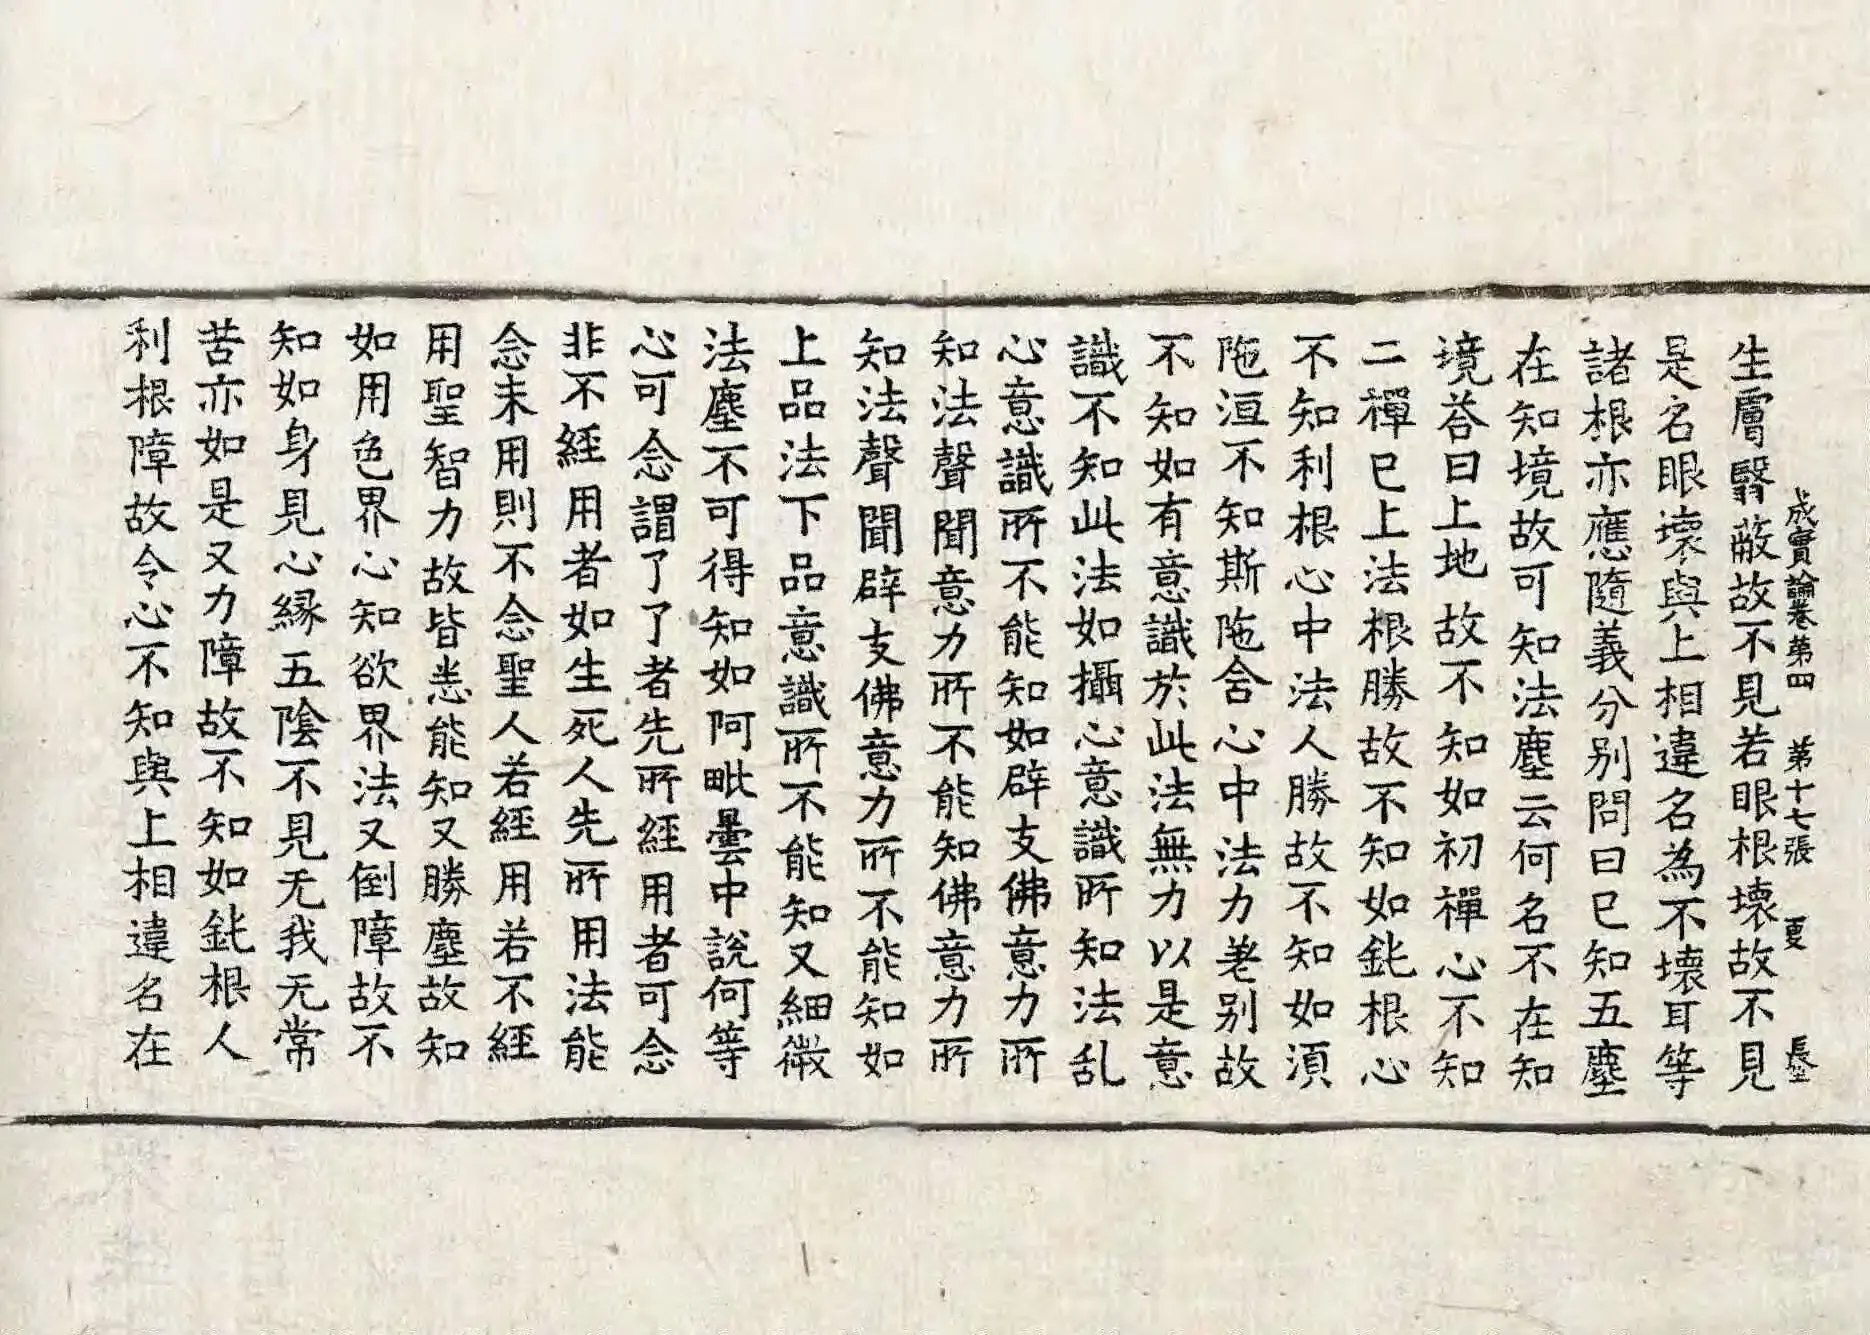 成實論卷第四　第十七張　更　長
生膚翳蔽故不見若眼根壞故不見
是名眼壞與上相違名為不壞耳等
諸根亦應隨義分別問曰已知五塵
在知境故可知法塵云何名不在知
境荅曰上地故不知如初禪心不知
二禪已上法根勝故不知如鈍根心
不知利根心中法人勝故不知如湏
陁洹不知斯陁含心中法力差别故
不知如有意識於此法無力以是意
識不知此法如攝心意識所知法乱
心意識所不能知如辟支佛意力所
知法聲聞意力所不能知佛意力所
知法聲聞辟支佛意力所不能知如
上品法下品意識所不能知又細微
法塵不可得知如阿毗曇中說何等
心可念謂了了者先所經用者可念
非不經用者如生死人先所用法能
念未用則不念聖人若經用若不經
用聖智力故皆悉能知又勝塵故知
如用色界心知欲界法又倒障故不
知如身見心緣五陰不見无我无常
苦亦如是又力障故不知如鈍根人
利根障故令心不知與上相違名在